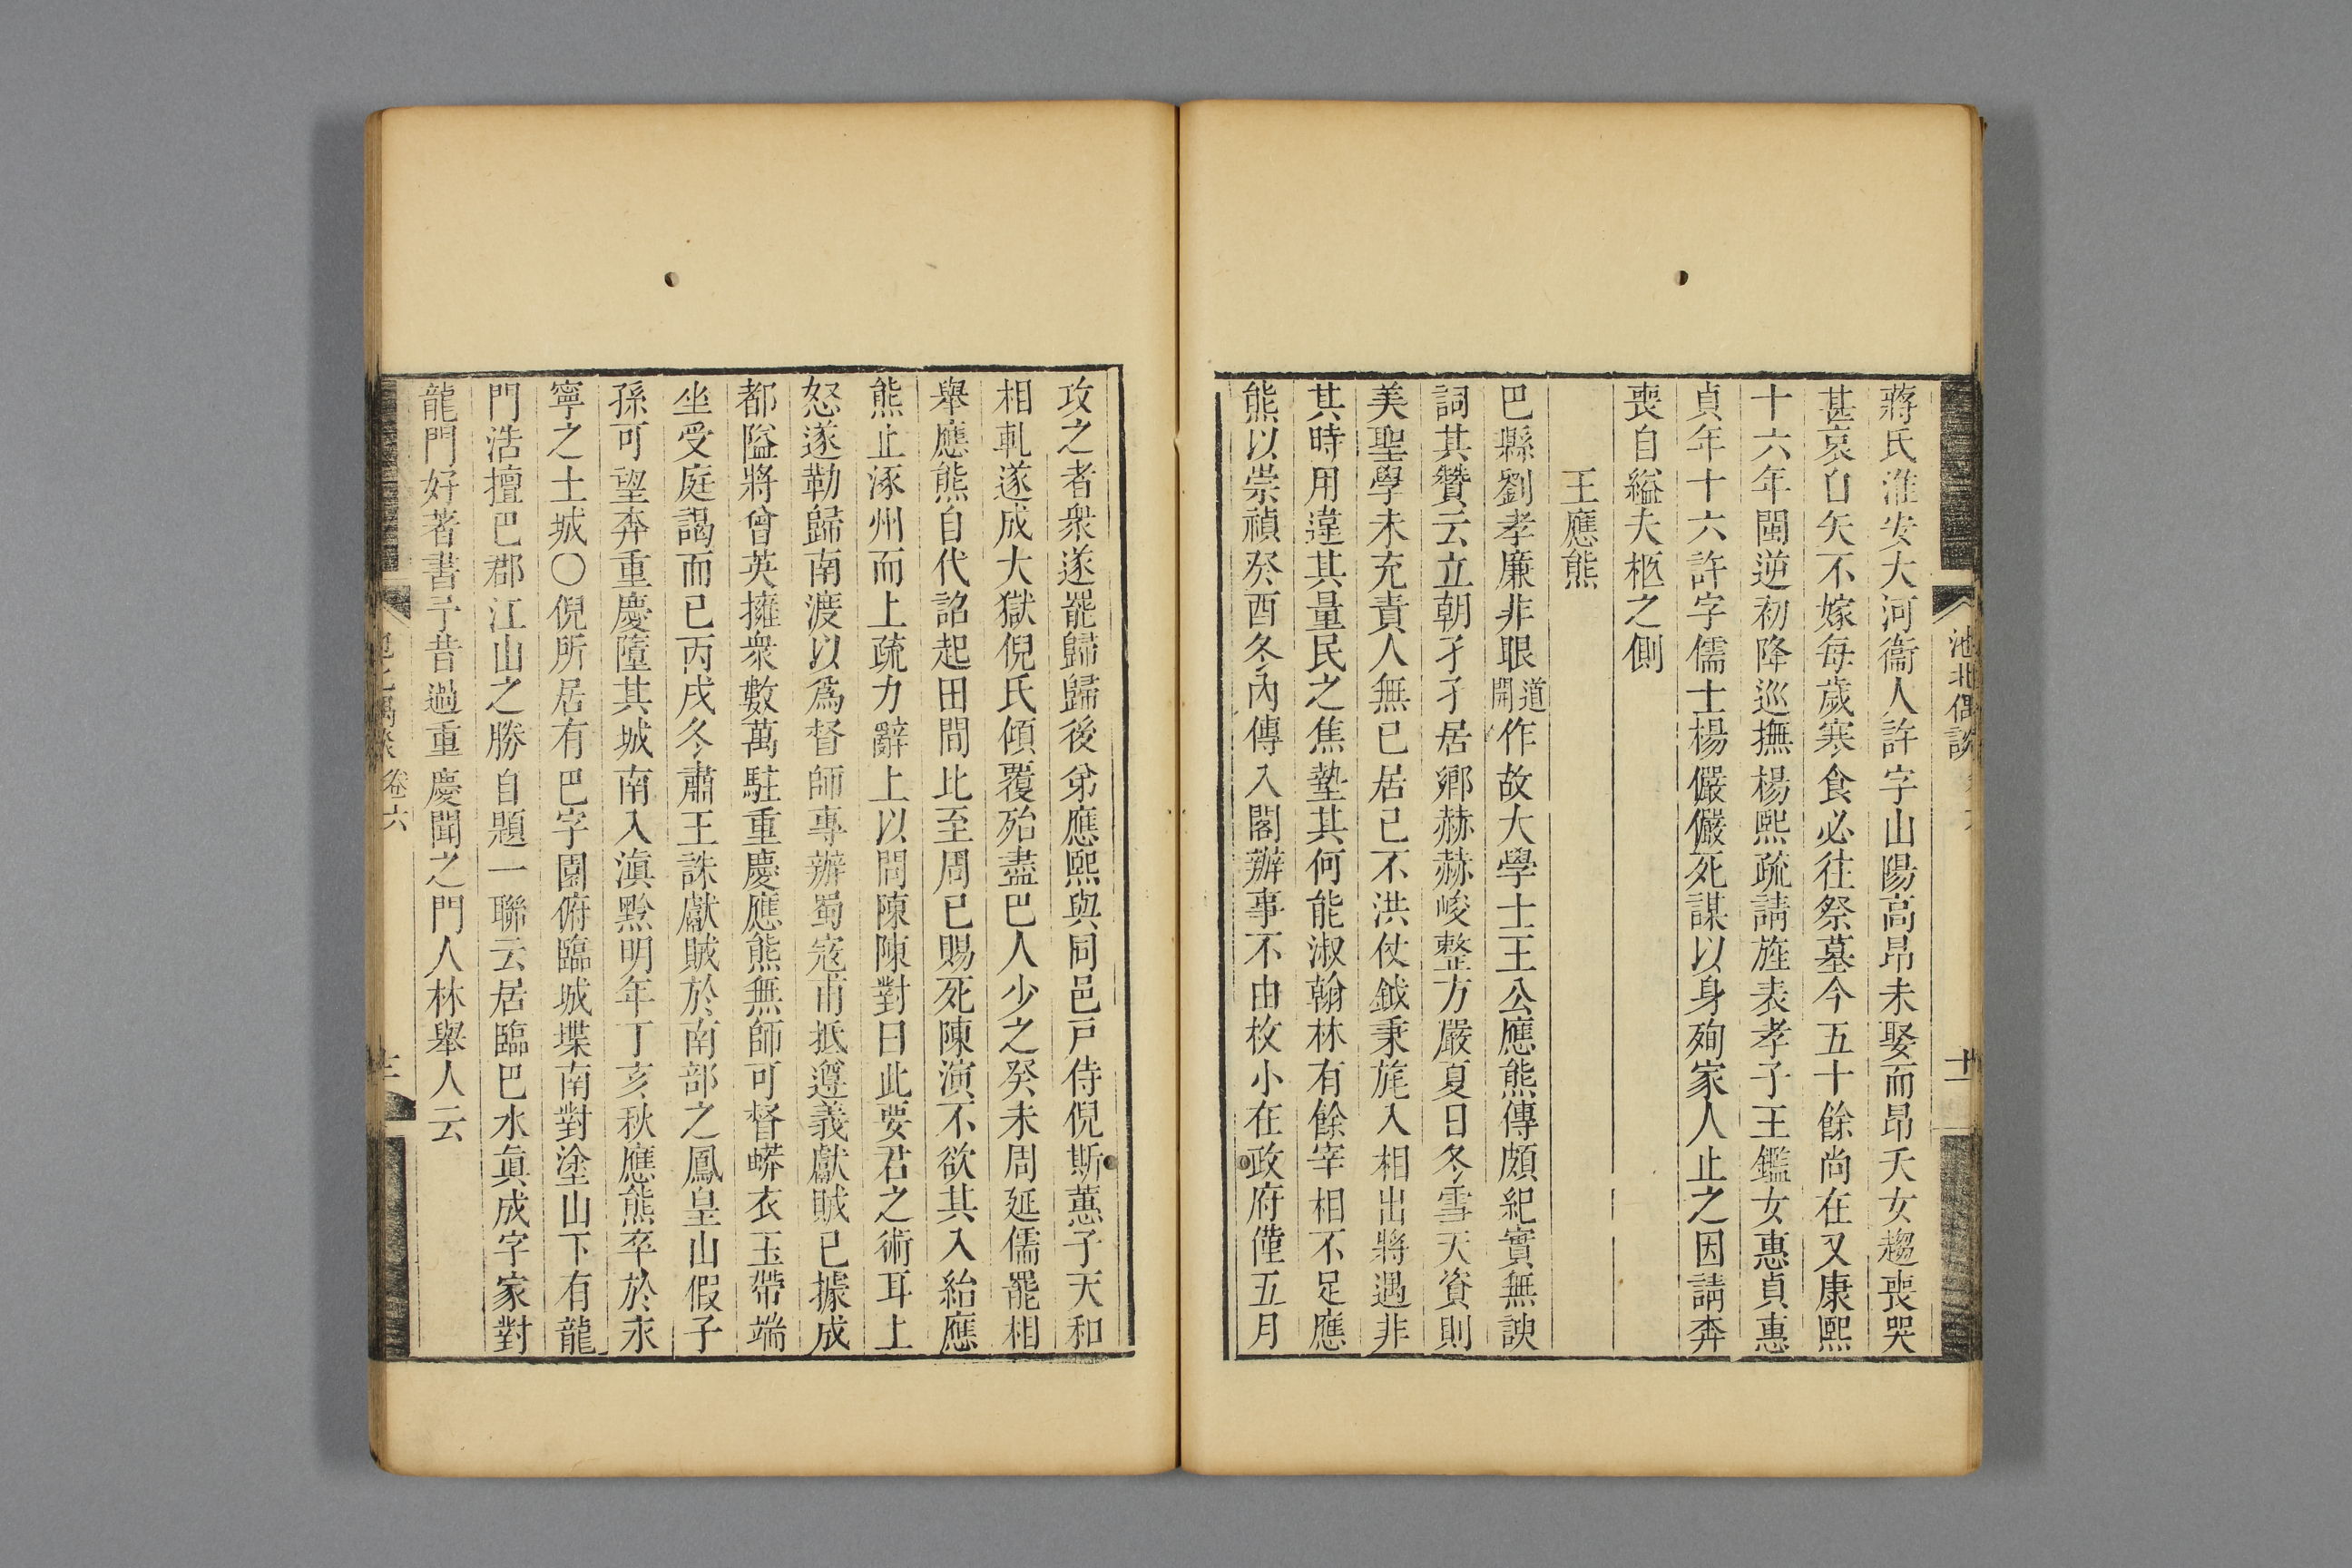 池北偶談
十一
蔣氏淮安大河衞人許字山陽高昂未娶而昂夭女趨喪哭
甚哀自矢不嫁每歲寒食必往祭墓今五十餘尚在又康熙
十六年閩逆初降巡撫楊熙疏請旌表孝子王鑑女惠貞惠
貞年十六許字儒士楊儼儼死謀以身殉家人止之因請奔
喪自縊夫柩之側
王應熊
巴縣劉孝廉非眼道開作故大學士王公應熊傳頗紀實無諛
詞其贊云立朝孑孑居鄉赫赫峻整方嚴夏日冬雪天資則
美聖學未充責人無已居己不洪仗鉞秉旄入相出將遇非
其時用違其量民之焦墊其何能淑翰林有餘宰相不足應
熊以崇禎癸酉冬內傳入閣辦事不由枚卜在政府僅五月
攻之者衆遂罷歸歸後弟應熙與同邑戸侍倪斯蕙子天和
相軋遂成大獄倪氏傾覆殆盡巴人少之癸未周延儒罷相
舉應熊自代詔起田間比至周已賜死陳演不欲其入紿應
熊止涿州而上疏力辭上以問陳陳對曰此要君之術耳上
怒遂勒歸南渡以爲督師專辦蜀寇甫抵遵義獻賊已據成
都隘將曾英擁衆數萬駐重慶應熊無師可督蟒衣玉帶端
坐受庭謁而已丙戌冬肅王誅獻賊於南部之鳳皇山假子
孫可望奔重慶墮其城南入滇黔明年丁亥秋應熊卒於永
寧之土城○倪所居有巴字園俯臨城堞南對塗山下有龍
門浩擅巴郡江山之勝自題一聯云居臨巴水眞成字家對
龍門好著書予昔過重慶聞之門人林舉人云
卷六